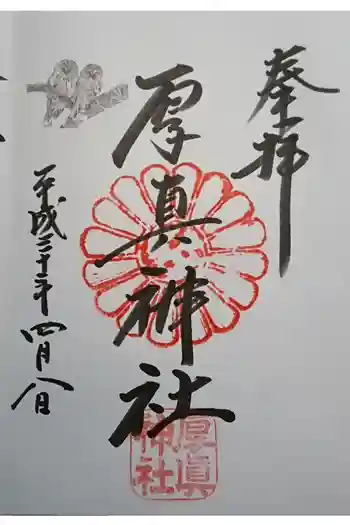 奉拝
厚真神社
平成三十一年四月八日
厚真
神社